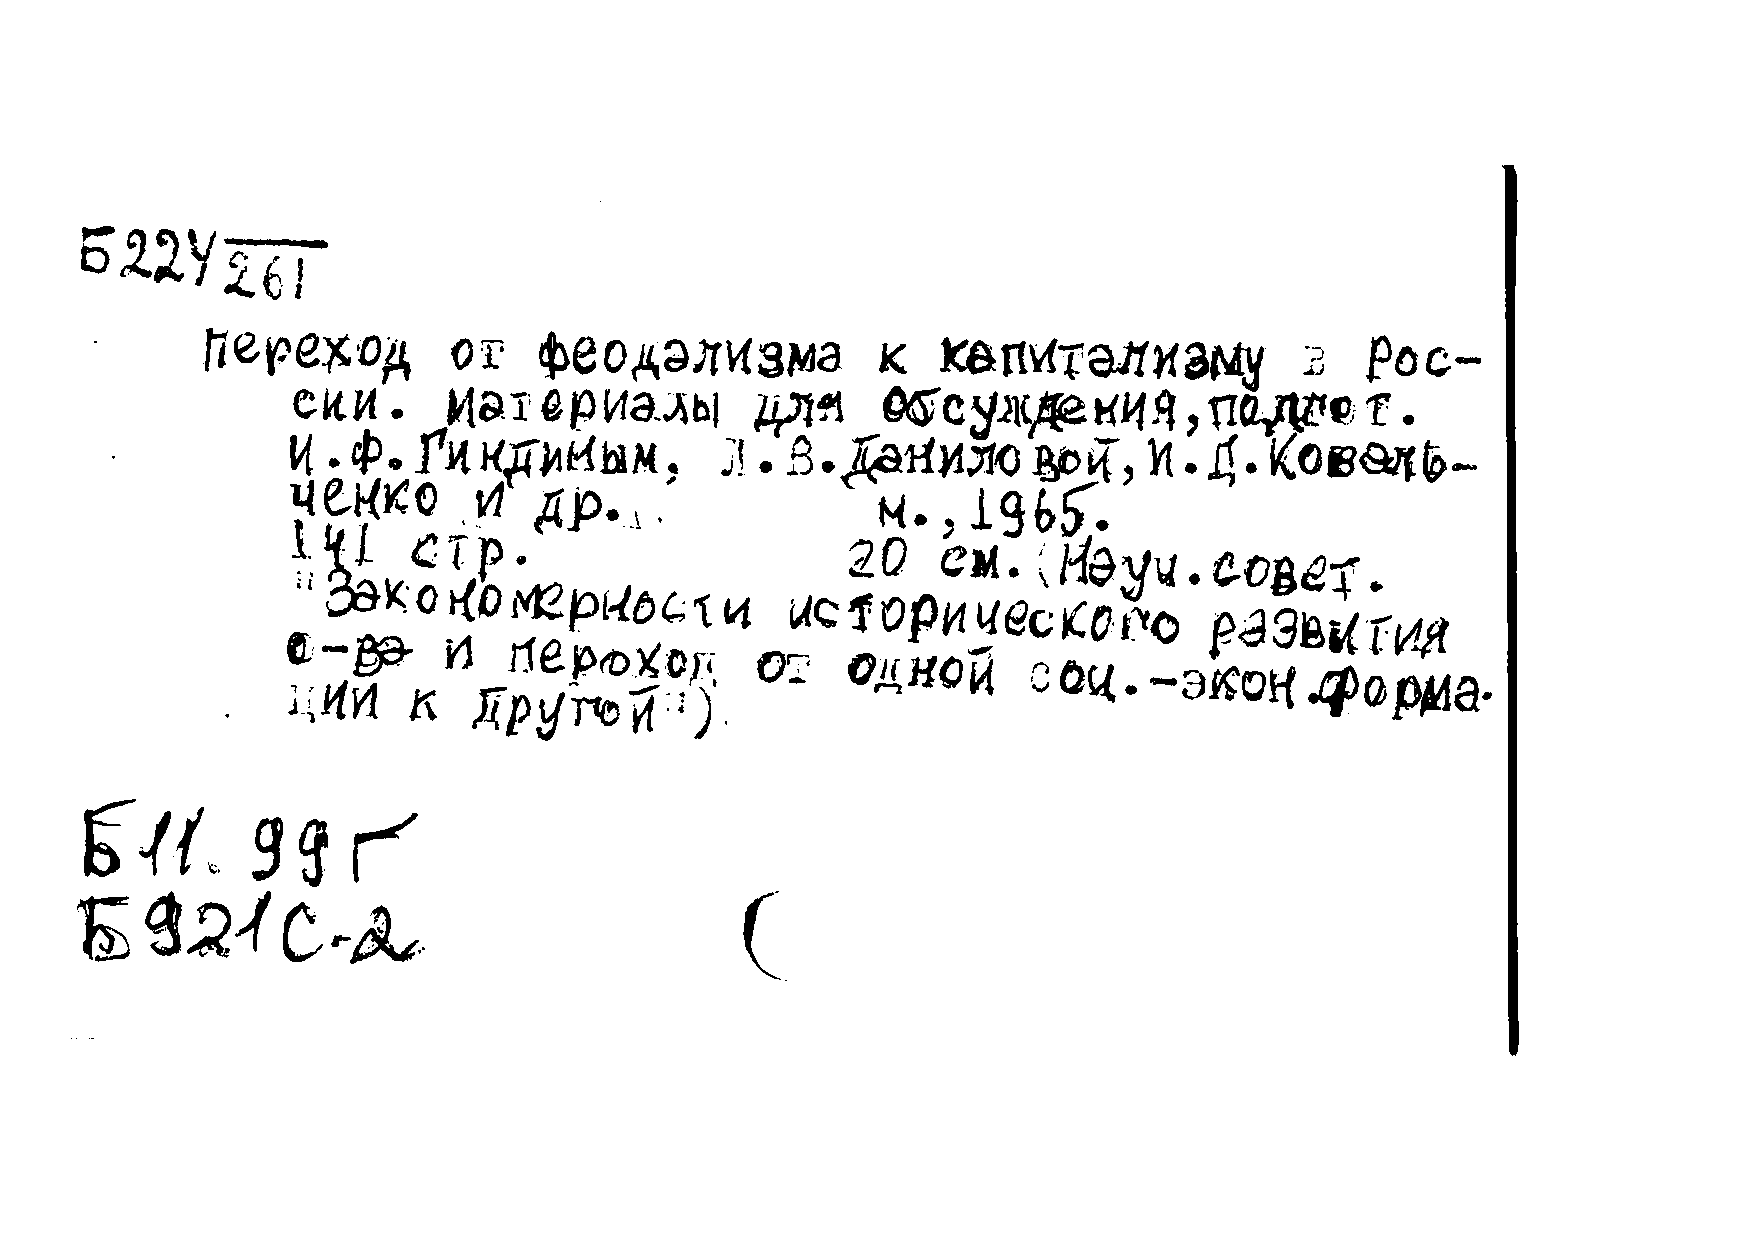 Б22У
261
Переход от феодализма к капитализму в Рос-
сии. Материалы для обсуждения, подгот.
И.Ф.Гиндиным, Л.В.Даниловой, И.Д.Коваль-
ченко и др. М., 1965.
141 стр. 20 см. (Науч. совет.
"Закономерности исторического развития
о-ва и переход от одной соц.-экон.форма-
ции к другой")
Б11.99Г
Б921С-2